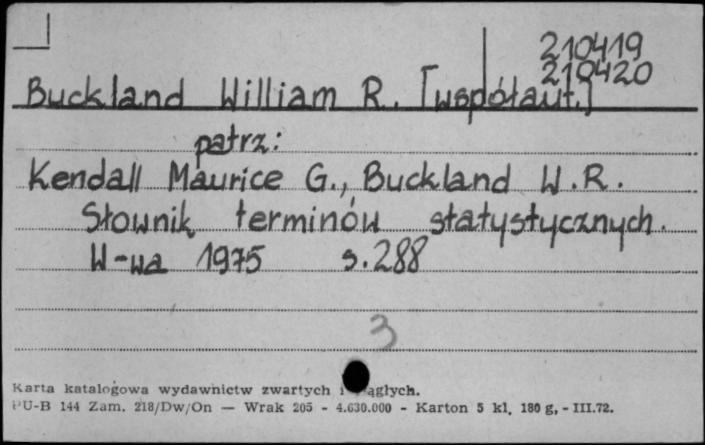 210419
210420
Buckland William R. [współaut.]
patrz:
Kendall Maurice G., Buckland W.R.
Słownik terminów statystycznych.
W-wa 1975 s. 288
3
Karta katalogowa wydawnictw zwartych i ągłych.
PU-B 144 Zam. 218/Dw/On — Wrak 205 - 4.630.000 - Karton 5 kl. 180 g, - III.72.